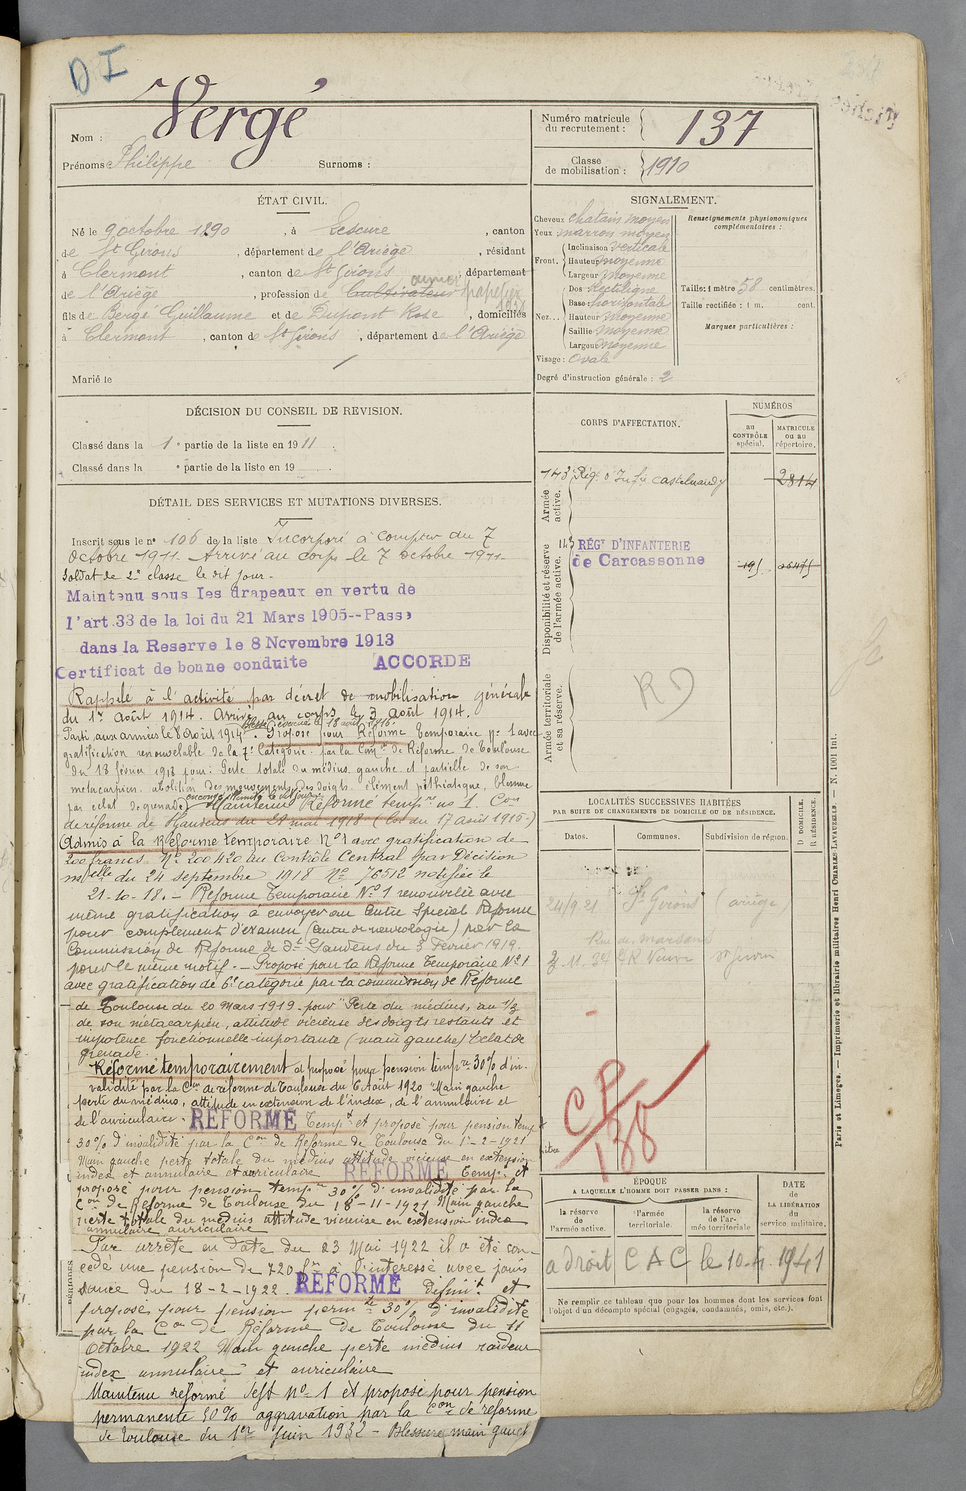 D I
Vergé
Nom :
Prénoms Philippe Surnoms :
Numéro matricule
du recrutement :
137
Classe
de mobilisation :
1910
ÉTAT CIVIL.
Né le 9 octobre 1890, à Lescure, canton
de St Girons, département de l'Ariège, résidant
à Clermont, canton de St Girons, département
de l'Ariège, profession de Cultivateur papetier
fils de Vergé Guillaume et de Dupont Rose, domiciliés
à Clermont, canton de St Girons, département de l'Ariège
Marié le
SIGNALEMENT.
Cheveux chatain moyen
Yeux marron moyen
Front. Inclinaison : verticale
Hauteur moyenne
Largeur moyenne
Nez... Dos Rectiligne
Base horizontale
Hauteur moyenne
Saillie moyenne
Largeur moyenne
Visage : ovale
Renseignements physionomiques
complémentaires :
Taille : 1 mètre 58 centimètres.
Taille rectifiée : 1 m. cent.
Marques particulières :
Degré d'instruction générale : 2
DÉCISION DU CONSEIL DE REVISION.
Classé dans la 1e partie de la liste en 1911.
Classé dans la e partie de la liste en 19
DÉTAIL DES SERVICES ET MUTATIONS DIVERSES.
Inscrit sous le n° 106 de la liste Incorporé à compter du 7
octobre 1911. Arrivé au corps le 7 octobre 1911.
Soldat de 2e classe le dit jour.
Maintenu sous les drapeaux en vertu de
l'art. 33 de la loi du 21 Mars 1905--Passé
dans la Reserve le 8 Novembre 1913
Certificat de bonne conduite ACCORDE
Rappelé à l'activité par décret de mobilisation générale
du 1er Août 1914. Arrivé au corps le 3 Août 1914.
Parti aux armées le 8 Août 1914. Proposé pour Réforme temporaire n° 1 avec
gratification renouvelable de la 7e Catégorie par la Comon de Réforme de Toulouse
du 13 février 1918 pour : Perte totale du médius gauche et partielle de son
métacarpien, abolition des mouvements des doigts, élément pithiatique, blessure
par éclat de grenade. Maintenu Réformé tempre no 1. Con
de réforme de St Gaudens du 28 mai 1918
Admis à la Réforme temporaire No 1 avec gratification de
200 francs No 200420 au Contrôle Central par Décision
mlelle du 24 septembre 1918 No 76512 notifiée le
21-10-18. - Réforme Temporaire No 1 renouvelée avec
même gratification à envoyer au Centre Spécial Réforme
pour complément d'examen (Centre de neurologie) par la
Commission de Réforme de St Gaudens du 3 Février 1919.
pour le même motif. - Proposé pour la Réforme Temporaire No 1
avec gratification de 6e catégorie par la commission de Réforme
de Toulouse du 20 Mars 1919 pour "Perte du médius, au 1/3
de son métacarpien, attitude vicieuse des doigts restants et
impotence fonctionnelle importante (main gauche) Eclat de
grenade.
Réformé temporairement et proposé pour pension tempre 30% d'in-
validité par la Con de réforme de Toulouse du 6 Août 1920 Main gauche
perte du médius, attitude en extension de l'index, de l'annulaire et
de l'auriculaire. REFORMÉ Tempt et proposé pour pension temp
30% d'invalidité par la Con de Réforme de Toulouse du 1-2-1921
Main gauche perte totale du médius attitude vicieuse en extension
index et annulaire et auriculaire REFORMÉ Tempt et
proposé pour pension tempre 30% d'invalidité par la
Con de Réforme de Toulouse du 18-11-1921 Main gauche
perte totale du médius attitude vicieuse en extension index
annulaire auriculaire
Par arrêté en date du 23 Mai 1922 il a été con-
cédé une pension de 720 frs à l'intéressé avec jouis
sance du 18-2-1922. REFORMÉ définit et
proposé pour pension permte 30% d'invalidité
par la Con de Réforme de Toulouse du 11
Octobre 1922 Main gauche perte médius raideur
index annulaire et auriculaire
Maintenu réformé déft no 1 et proposé pour pension
permanente 50% aggravation par la Con de réforme
de Toulouse du 1er Juin 1932 - Blessure main gauch
CORPS D'AFFECTATION.
NUMÉROS
au
CONTRÔLE
spécial.
MATRICULE
ou au
répertoire.
Armée
active.
143 Rég d'Infie Castelnaudary 2814
Disponibilité et réserve
de l'armée active.
143 RÉGt D'INFANTERIE
de Carcassonne
Armée territoriale
et sa réserve.
LOCALITÉS SUCCESSIVES HABITÉES
PAR SUITE DE CHANGEMENTS DE DOMICILE OU DE RÉSIDENCE.
D. DOMICILE.
R. RÉSIDENCE.
Dates.
Communes.
Subdivision de région.
24/9 21 St Girons (ariège)
CP
138
ÉPOQUE
A LAQUELLE L'HOMME DOIT PASSER DANS :
la réserve
de
l'armée active.
l'armée
territoriale.
la réserve
de l'ar-
mée territoriale
DATE
de
LA LIBÉRATION
du
service militaire.
a droit CAC le 10-4-1941
Ne remplir ce tableau que pour les hommes dont les services font
l'objet d'un décompte spécial (engagés, condamnés, omis, etc.).
Paris et Limoges. — Imprimerie et librairie militaires Henri CHARLES-LAVAUZELLE. — N. 1001 Int.